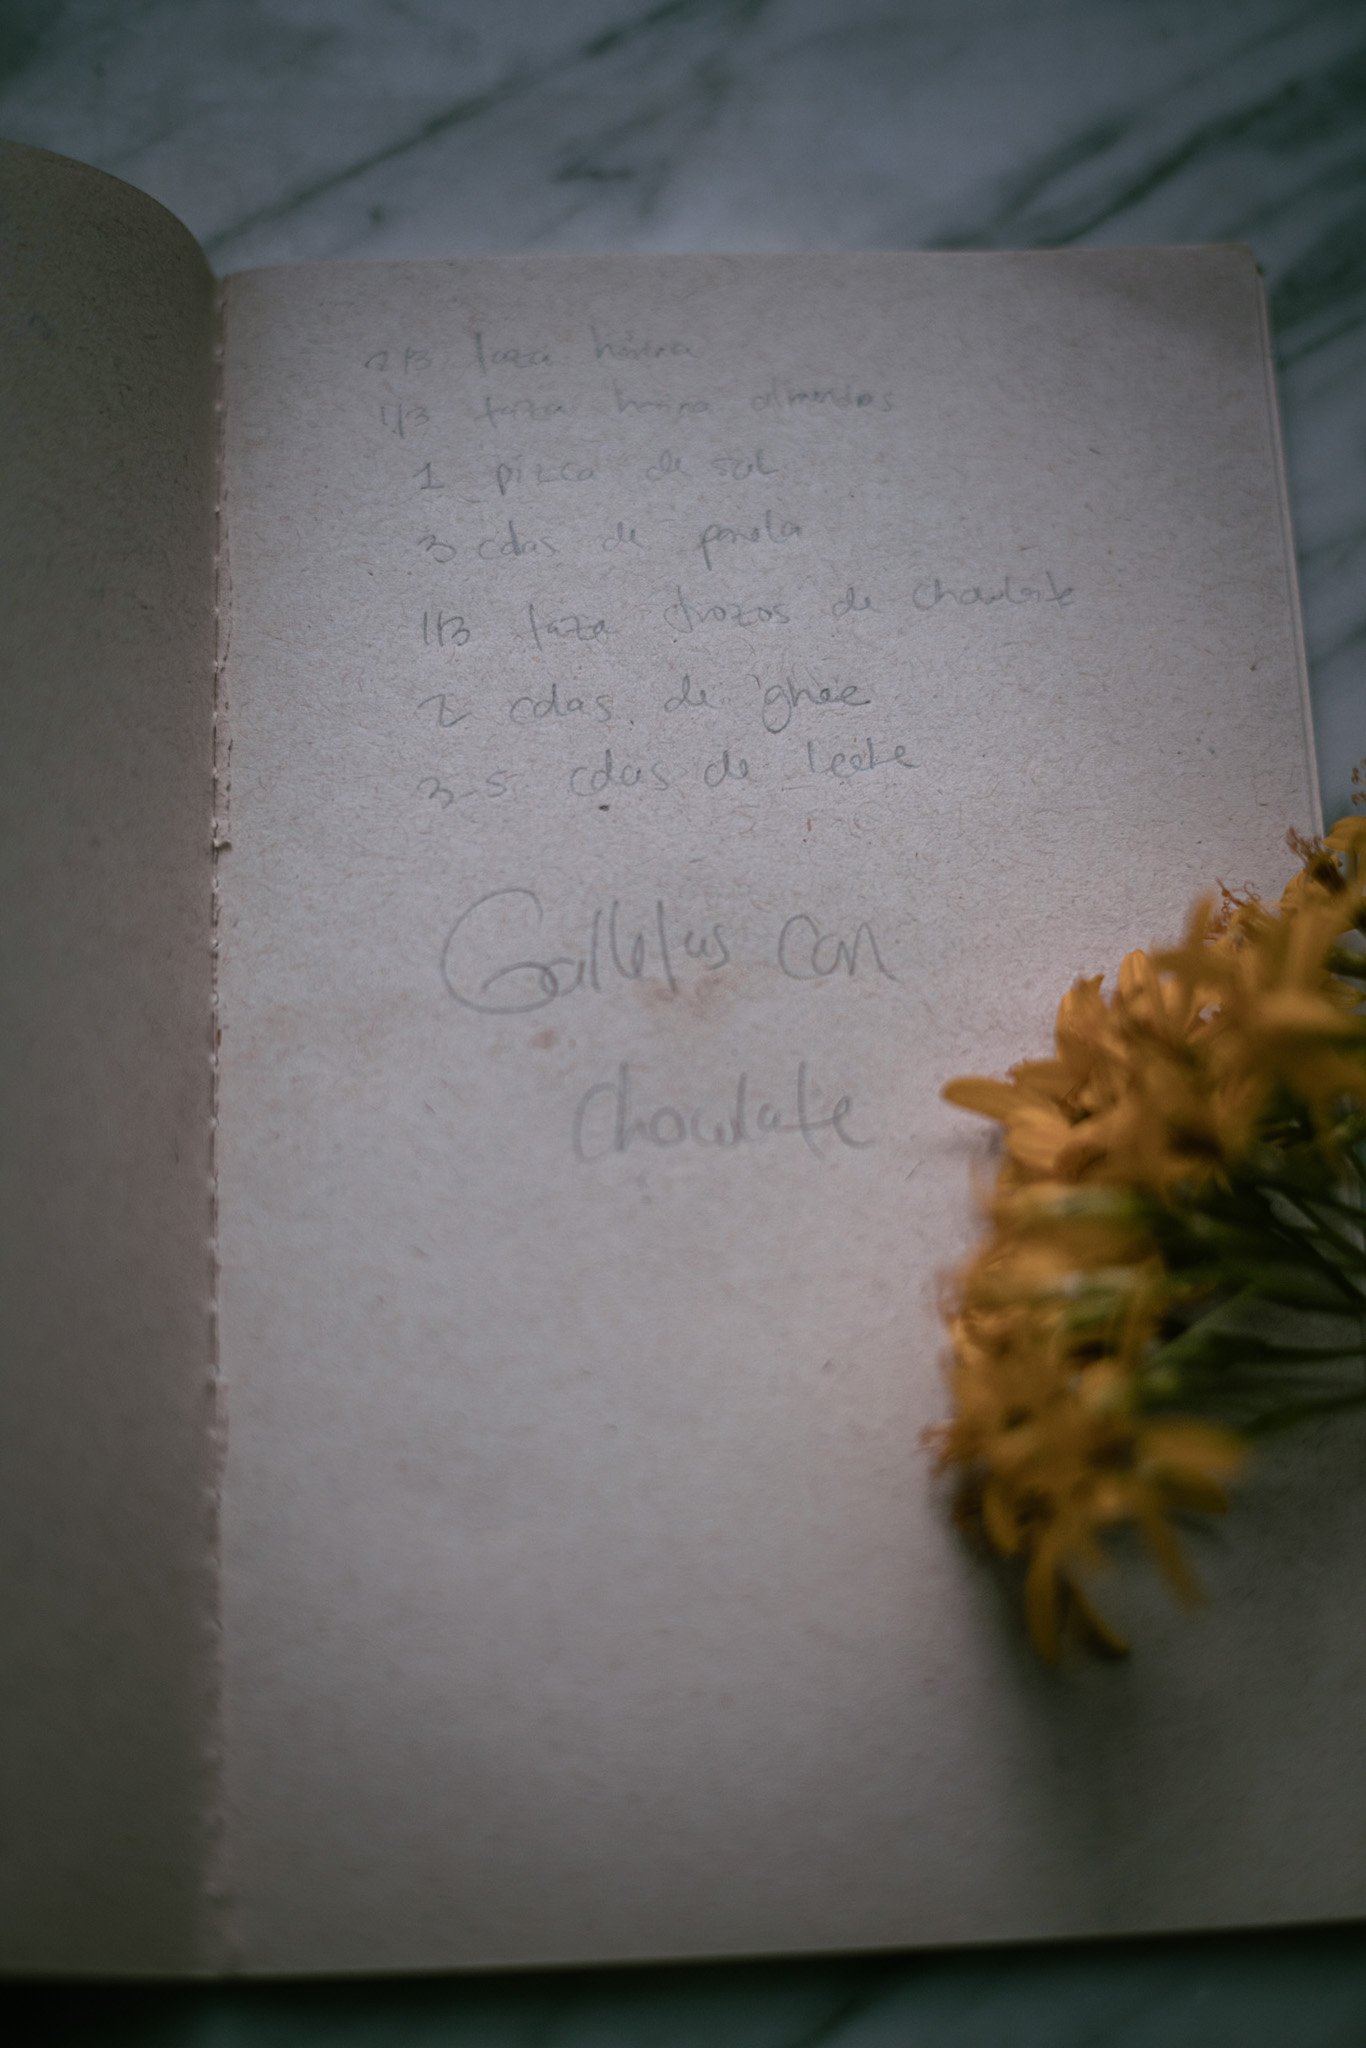 2/3 taza harina
1/3 taza harina almendras
1 pizca de sal
3 cdas de panela
1/3 taza trozos de chocolate
2 cdas de ghee
3-5 cdas de leche
Galletas con
chocolate